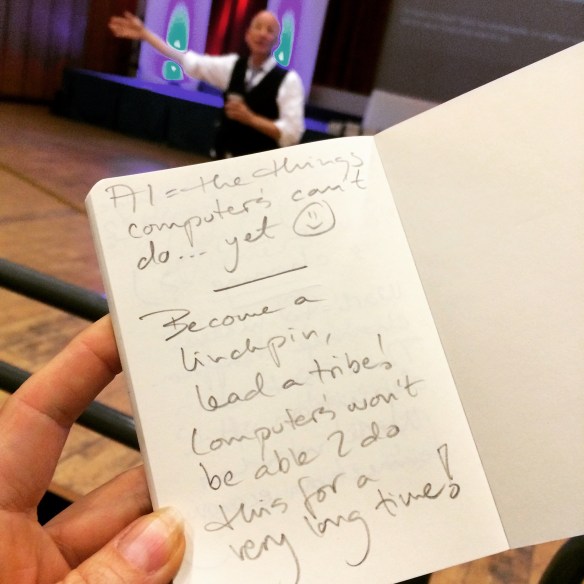 AI = the things
computers can't
do... yet
Become a
linchpin,
lead a tribe!
Computers won't
be able 2 do
this for a
very long time!